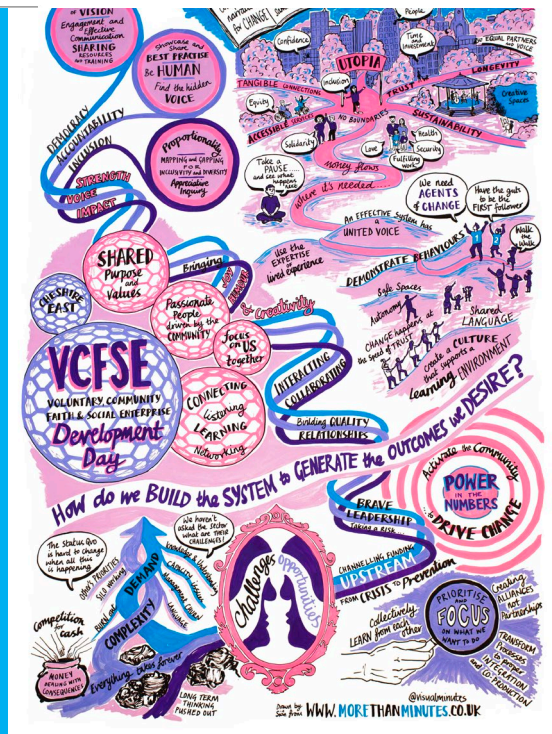 of VISION
Engagement and
Effective
Communication
SHARING
RESOURCES
and TRAINING
Showcase and
Share
BEST PRACTISE
Be HUMAN
Find the hidden
VOICE
for CHANGE!
DEMOCRACY
ACCOUNTABILITY
INCLUSION
STRENGTH
VOICE
IMPACT
Proportionality
MAPPING and GAPPING
FOR
INCLUSIVITY and DIVERSITY
Appreciative
Inquiry
People
Confidence
Time
and
Investment
EQUAL PARTNERS
and VOICE
UTOPIA
Inclusion
LONGEVITY
TANGIBLE CONNECTIONS
TRUST
Creative
Spaces
Equity
ACCESSIBLE SERVICES
NO BOUNDARIES
SUSTAINABILITY
Solidarity
Love
Health
Security
Fulfilling
work
Take a
PAUSE.....
and see what
happens
next
Money flows
where it's needed.......
We need
AGENTS
of CHANGE
Have the guts
to be the
FIRST follower
AN EFFECTIVE System has
a
UNITED VOICE
1
2
Walk
the
Walk
DEMONSTRATE BEHAVIOURS
Use the
EXPERTISE
of
lived experience
Safe Spaces
Autonomy
Shared
LANGUAGE
CHANGE happens at
the Speed of TRUST
Create a CULTURE
that supports a
Learning ENVIRONMENT
SHARED
Purpose
and
Values
Bringing
JOY
& Creativity
CHESHIRE
EAST
Passionate
People
driven by the
COMMUNITY
focus
on US
together
VCFSE
VOLUNTARY, COMMUNITY
FAITH & SOCIAL ENTERPRISE
Development
Day
CONNECTING
Listening
LEARNING
Networking
INTERACTING
COLLABORATING
Building QUALITY
RELATIONSHIPS
HOW do we BUILD the SYSTEM to GENERATE the OUTCOMES we DESIRE?
Activate the Community
POWER
IN THE
NUMBERS
to DRIVE CHANGE
BRAVE
LEADERSHIP
Taking a RISK....
CHANNELLING FUNDING
UPSTREAM
FROM CRISIS to Prevention
The Status Quo
is hard to change
when all this
is happening
We haven't
asked the Sector
what are THEIR
CHALLENGES!
SILO working
DEMAND
COMPLEXITY
BURN OUT
Knowledge & Understanding
CAPACITY
LANGUAGE
Challenges
opportunities
Competition
for
cash
MONEY
DEALING WITH
CONSEQUENCES
Everything takes forever
LONG TERM
THINKING
PUSHED OUT
Collectively
LEARN from each
other
PRIORITISE
AND
FOCUS
ON WHAT WE
WANT TO DO
Creating
ALLIANCES
not
Partnerships
TRANSFORM
Processes
to proper
INTEGRATION
and CO-PRODUCTION
@visualminutes
WWW.MORETHANMINUTES.CO.UK